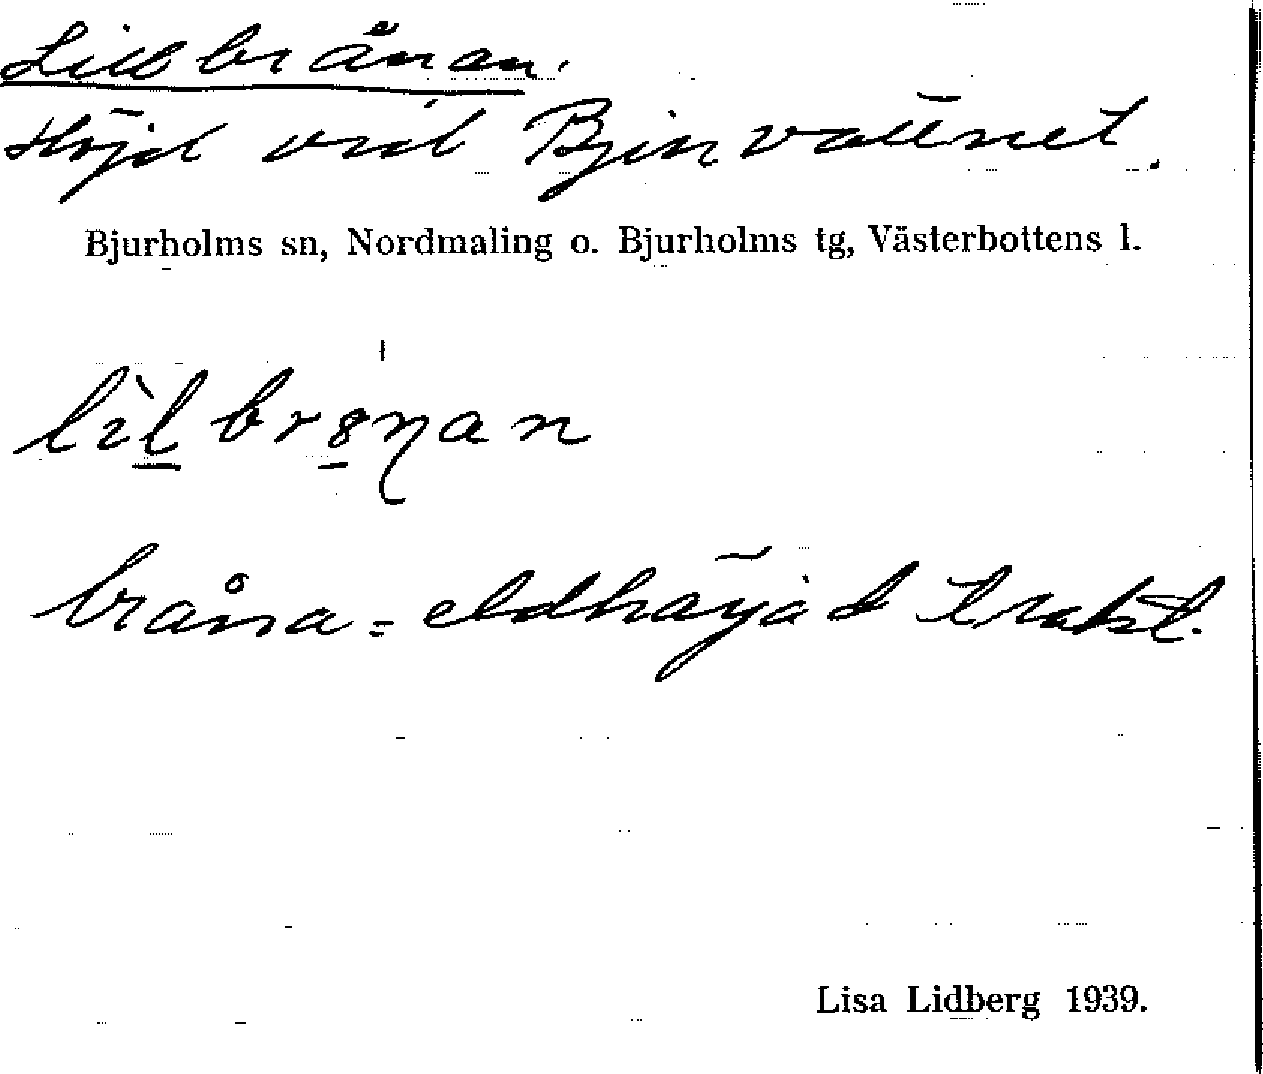 Lillbrånan.
Höjd vid Bjurvattnet.
Bjurholms sn, Nordmaling o. Bjurholms tg, Västerbottens l.
bråna = eldhärjad trakt.
Lisa Lidberg 1939.